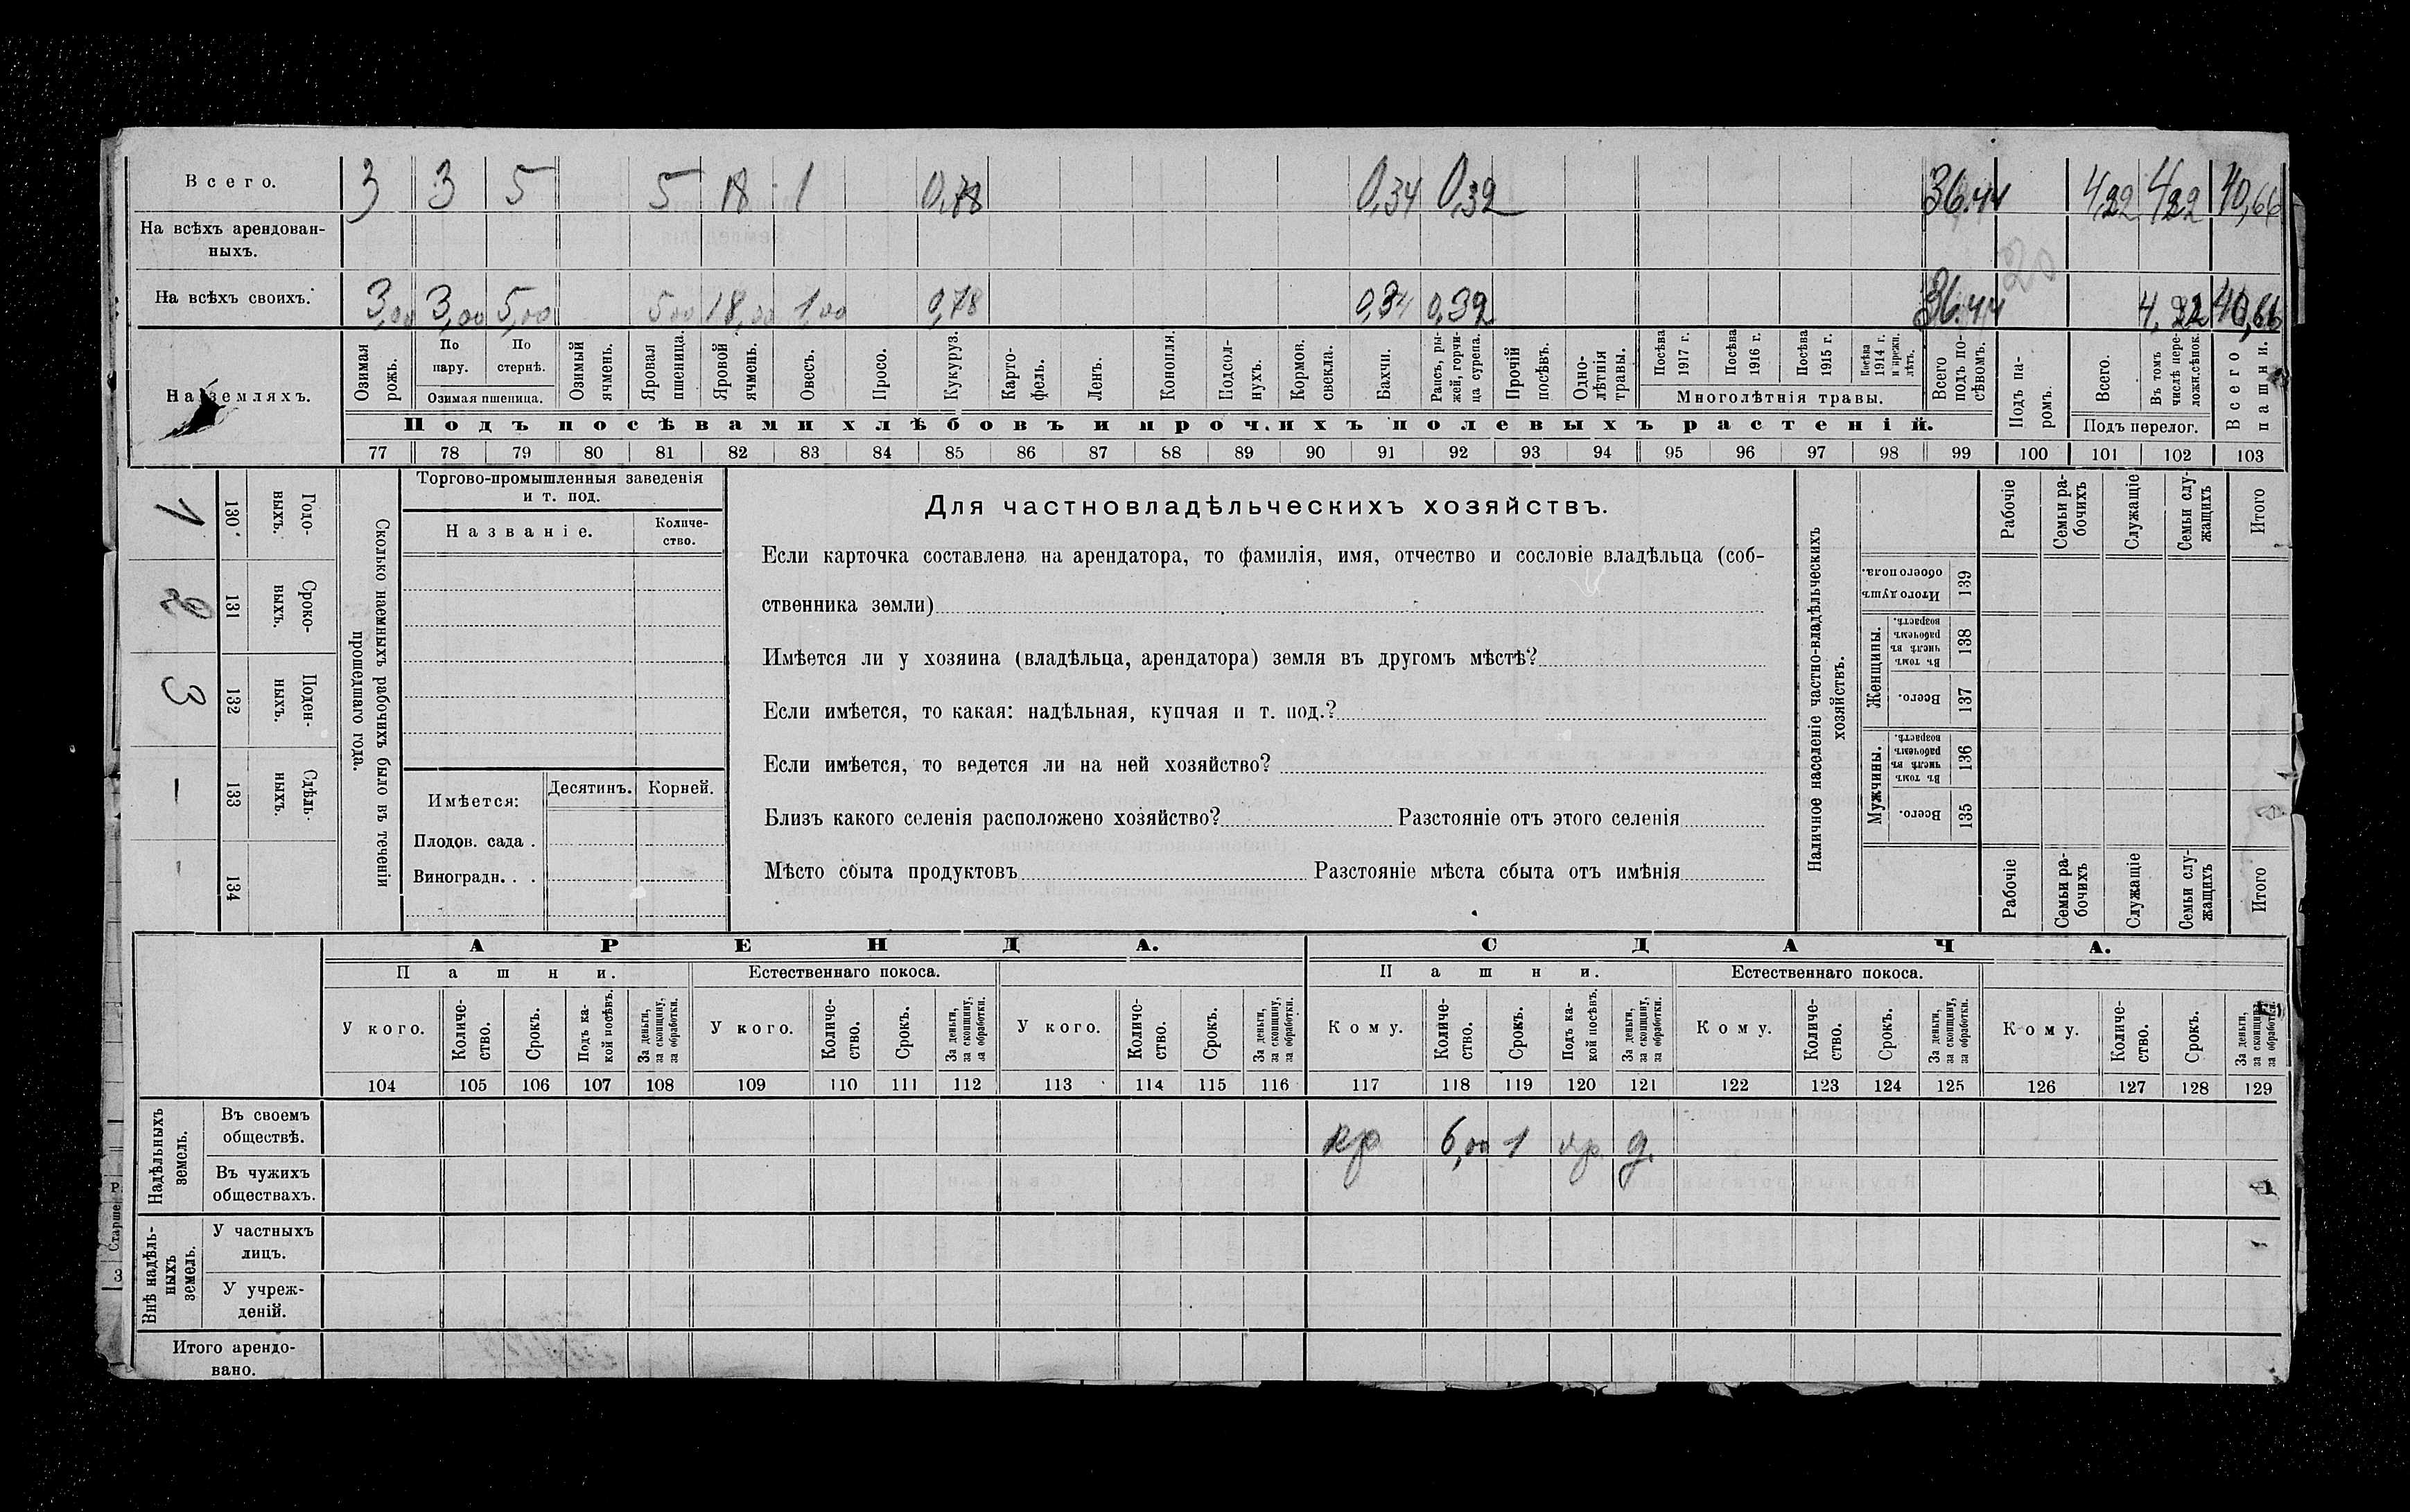 Всего. 3 3 5 5 18 1 0,78 0,34 0,32 36.44 4,22 4,22 40,66
На всѣхъ арендован-
ныхъ.
20
На всѣхъ своихъ. 3,00 3,00 5,00 5,00 18,00 1,00 0,78 0,34 0,32 36.44 4,22 40,66
На земляхъ.
Озимая
рожь.
По
пару.
По
стернѣ.
Озимая пшеница.
Озимый
ячмень.
Яровая
пшеница.
Яровой
ячмень.
Овесъ.
Просо.
Кукуруз.
Карто-
фель.
Ленъ.
Конопля.
Подсол-
нухъ.
Кормов.
свекла.
Бахчи.
Рапсъ, ры-
жей, горчи-
ца сурепа.
Прочій
посѣвъ.
Одно-
лѣтнія
травы.
Посѣва
1917 г.
Посѣва
1916 г.
Посѣва
1915 г.
Посѣва
1914 г.
и прежн.
лѣтъ.
Многолѣтнія травы.
Всего
подъ по-
сѣвомъ.
Подъ па-
ромъ.
Всего.
Въ томъ
числѣ пере-
ложн. сѣнок.
Подъ перелог.
Всего
пашни.
Подъ посѣвами хлѣбовъ и прочихъ полевыхъ растеній.
77 78 79 80 81 82 83 84 85 86 87 88 89 90 91 92 93 94 95 96 97 98 99 100 101 102 103
Сколько наемныхъ рабочихъ было въ теченіи
прошедшаго года.
Годо-
выхъ.
130
1
Сроко-
выхъ.
131
Поден-
ныхъ.
132
3
Сдѣль-
ныхъ.
133
—
134
-
Торгово-промышленныя заведенія
и т. под.
Названіе.
Количе-
ство.
Имѣется:
Десятинъ. Корней.
Плодов. сада .
Виноградн. . .
Для частновладѣльческихъ хозяйствъ.
Если карточка составлена на арендатора, то фамилія, имя, отчество и сословіе владѣльца (соб-
ственника земли)
Имѣется ли у хозяина (владѣльца, арендатора) земля въ другомъ мѣстѣ?
Если имѣется, то какая: надѣльная, купчая и т. под.?
Если имѣется, то ведется ли на ней хозяйство?
Близъ какого селенія расположено хозяйство? Разстояніе отъ этого селенія
Мѣсто сбыта продуктовъ Разстояніе мѣста сбыта отъ имѣнія
Наличное населеніе частно-владѣльческихъ
хозяйствъ.
Рабочіе
Семьи ра-
бочихъ
Служащіе
Семьи слу-
жащихъ
Итого
Итого душъ
обоего пола.
139
Женщины.
Въ томъ
числѣ въ
рабочемъ
возрастѣ.
138
Всего.
137
Мужчины.
Въ томъ
числѣ въ
рабочемъ
возрастѣ.
136
Всего.
135
Рабочіе
Семьи ра-
бочихъ
Служащіе
Семьи слу-
жащихъ
Итого
АРЕНДА. СДАЧА.
Пашни. Естественнаго покоса. Пашни. Естественнаго покоса.
У кого.
Количе-
ство.
Срокъ.
Подъ ка-
кой посѣвъ.
За деньги,
за скопщину,
за обработки.
У кого.
Количе-
ство.
Срокъ.
За деньги,
за скопщину,
за обработки.
У кого.
Количе-
ство.
Срокъ.
За деньги,
за скопщину,
за обработки.
Кому.
Количе-
ство.
Срокъ.
Подъ ка-
кой посѣвъ.
За деньги,
за скопщину,
за обработки.
Кому.
Количе-
ство.
Срокъ.
За деньги,
за скопщину,
за обработки.
Кому.
Количе-
ство.
Срокъ.
За деньги,
за скопщину,
за обработки.
104 105 106 107 108 109 110 111 112 113 114 115 116 117 118 119 120 121 122 123 124 125 126 127 128 129
Надѣльныхъ
земель.
Въ своемъ
обществѣ.
кр 6,00 1 яр. д.
Въ чужихъ
обществахъ.
Внѣ надѣль-
ныхъ
земель.
У частныхъ
лицъ.
У учреж-
деній.
Итого арендо-
вано.
Р
Старше
З